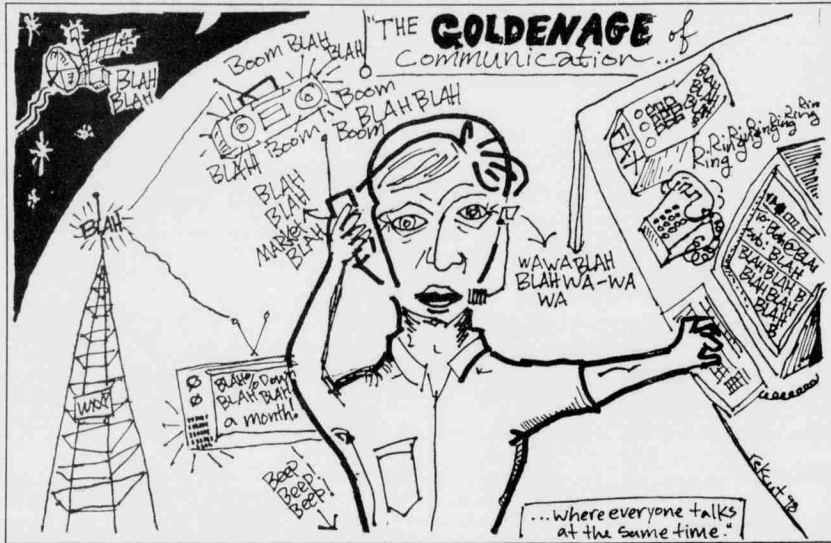 "THE GOLDENAGE of
Communication...
BLAH
BLAH
Boom BLAH
BLAH
Boom
BLAH BLAH
Boom
Boom
BLAH
BLAH
BLAH
BLAH
MARKET
BLAH
BLAH
WXXP
BLAH % Down
BLAH BLAH
a month.
Beep
Beep!
Beep!
WAWABLAH
BLAHWA-WA
WA
FAX
BLAH
BLAH
BLAH
BLAH
Ring Ring Ring Ring Ring Ring
to: BLAH@BLAH
sub: BLAH
BLAH BLAH B
BLAH BLAH
BLAH
B
rekcut 98
...where everyone talks
at the same time."